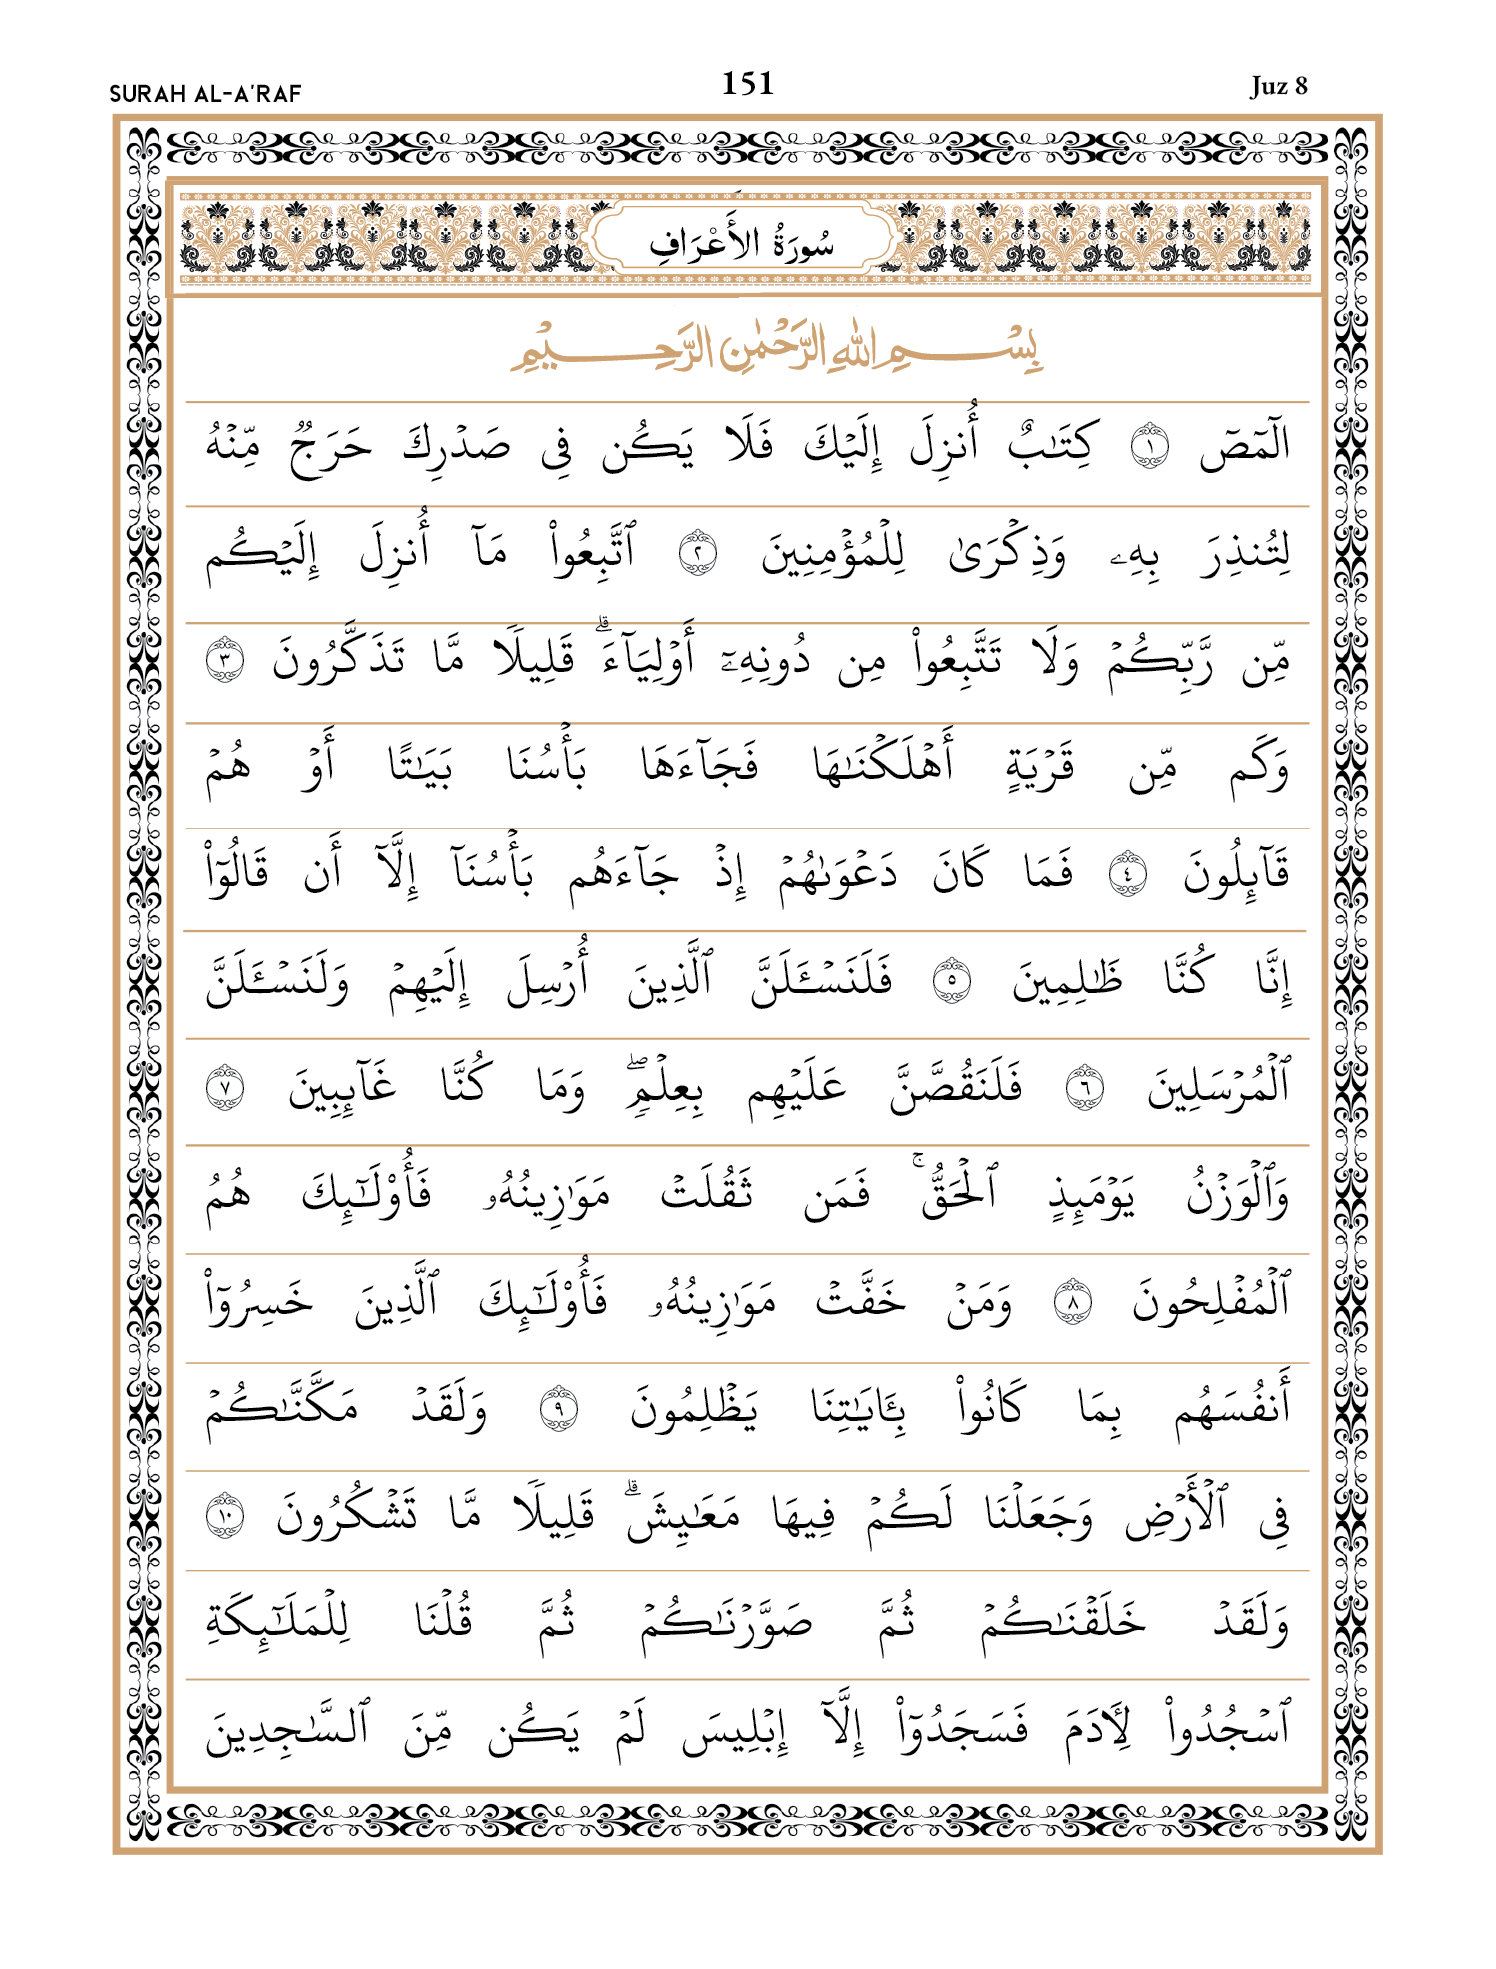 SURAH AL-A'RAF
151
Juz 8
سُورَةُ الأَعْرَافِ
بِسْمِ اللهِ الرَّحْمٰنِ الرَّحِيْمِ
الٓمٓصٓ ١ كِتَـٰبٌ أُنزِلَ إِلَيْكَ فَلَا يَكُن فِى صَدْرِكَ حَرَجٌ مِّنْهُ
لِتُنذِرَ بِهِۦ وَذِكْرَىٰ لِلْمُؤْمِنِينَ ٢ ٱتَّبِعُوا۟ مَآ أُنزِلَ إِلَيْكُم
مِّن رَّبِّكُمْ وَلَا تَتَّبِعُوا۟ مِن دُونِهِۦٓ أَوْلِيَآءَ ۗ قَلِيلًا مَّا تَذَكَّرُونَ ٣
وَكَم مِّن قَرْيَةٍ أَهْلَكْنَـٰهَا فَجَآءَهَا بَأْسُنَا بَيَـٰتًا أَوْ هُمْ
قَآئِلُونَ ٤ فَمَا كَانَ دَعْوَىٰهُمْ إِذْ جَآءَهُم بَأْسُنَآ إِلَّآ أَن قَالُوٓا۟
إِنَّا كُنَّا ظَـٰلِمِينَ ٥ فَلَنَسْـَٔلَنَّ ٱلَّذِينَ أُرْسِلَ إِلَيْهِمْ وَلَنَسْـَٔلَنَّ
ٱلْمُرْسَلِينَ ٦ فَلَنَقُصَّنَّ عَلَيْهِم بِعِلْمٍ ۖ وَمَا كُنَّا غَآئِبِينَ ٧
وَٱلْوَزْنُ يَوْمَئِذٍ ٱلْحَقُّ ۚ فَمَن ثَقُلَتْ مَوَٰزِينُهُۥ فَأُو۟لَـٰٓئِكَ هُمُ
ٱلْمُفْلِحُونَ ٨ وَمَنْ خَفَّتْ مَوَٰزِينُهُۥ فَأُو۟لَـٰٓئِكَ ٱلَّذِينَ خَسِرُوٓا۟
أَنفُسَهُم بِمَا كَانُوا۟ بِـَٔايَـٰتِنَا يَظْلِمُونَ ٩ وَلَقَدْ مَكَّنَّـٰكُمْ
فِى ٱلْأَرْضِ وَجَعَلْنَا لَكُمْ فِيهَا مَعَـٰيِشَ ۗ قَلِيلًا مَّا تَشْكُرُونَ ١٠
وَلَقَدْ خَلَقْنَـٰكُمْ ثُمَّ صَوَّرْنَـٰكُمْ ثُمَّ قُلْنَا لِلْمَلَـٰٓئِكَةِ
ٱسْجُدُوا۟ لِـَٔادَمَ فَسَجَدُوٓا۟ إِلَّآ إِبْلِيسَ لَمْ يَكُن مِّنَ ٱلسَّـٰجِدِينَ